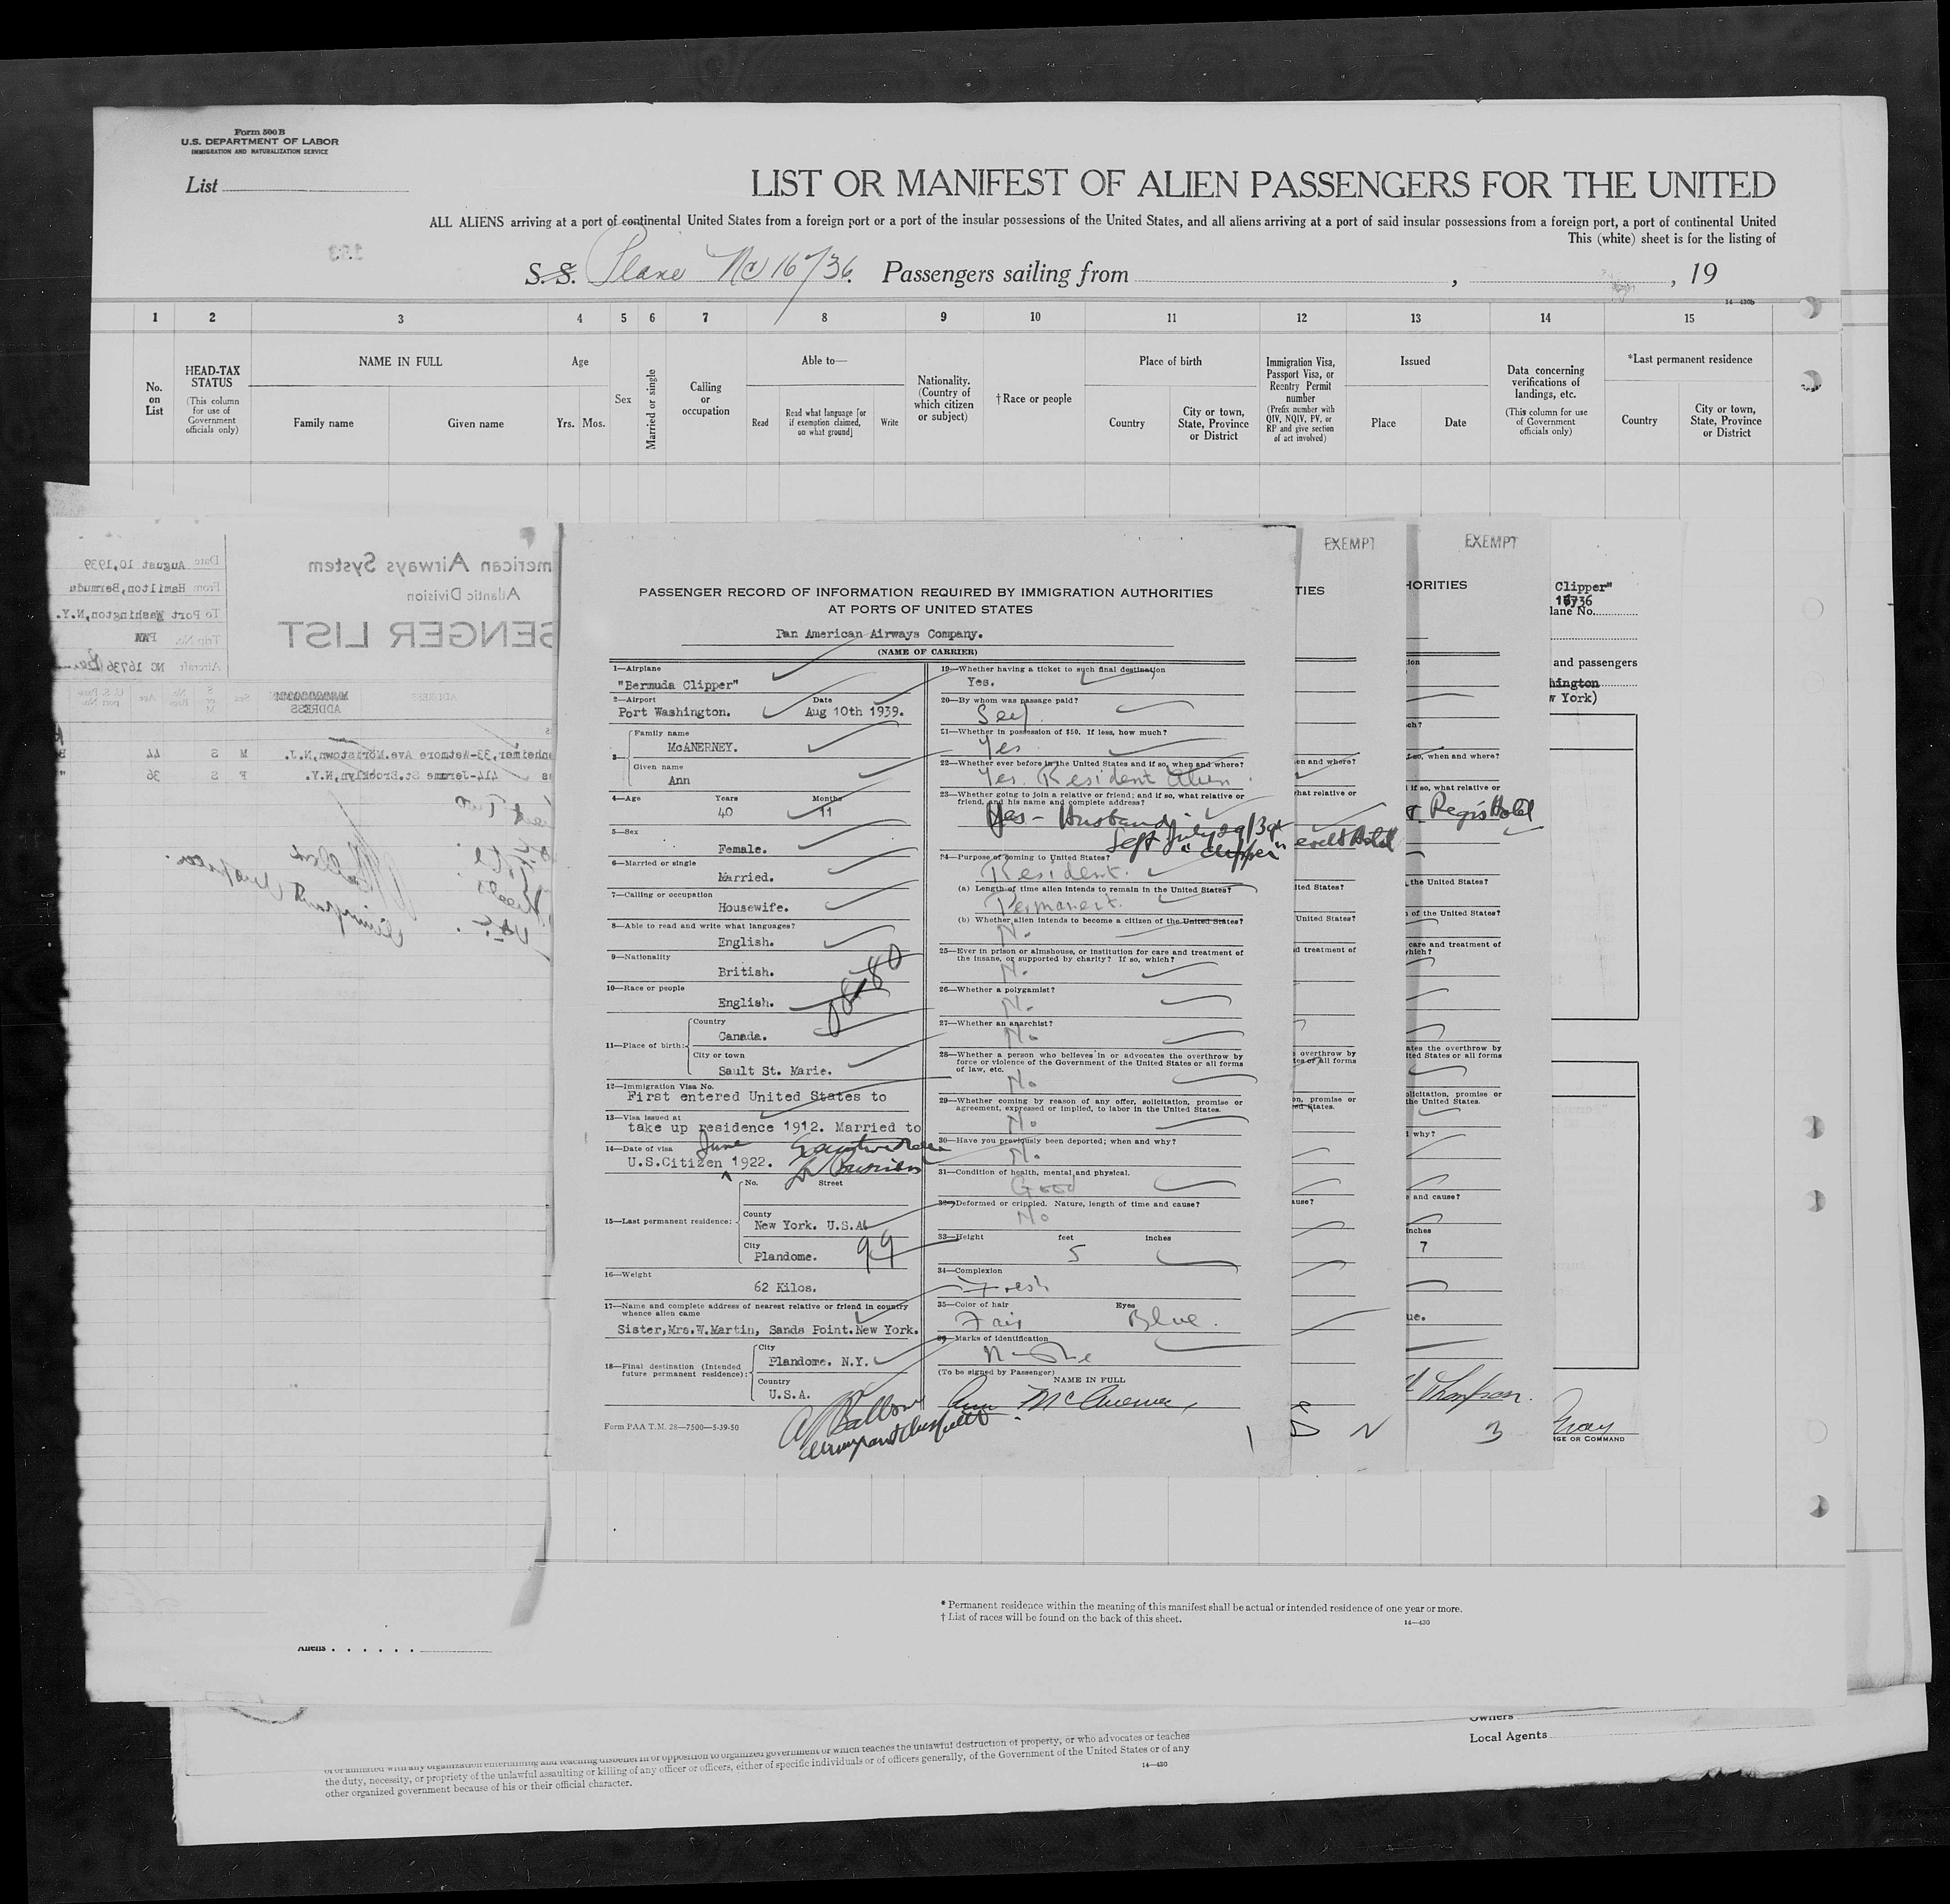 Form 500 B
U.S. DEPARTMENT OF LABOR
IMMIGRATION AND NATURALIZATION SERVICE
List
LIST OR MANIFEST OF ALIEN PASSENGERS FOR THE UNITED
ALL ALIENS arriving at a port of continental United States from a foreign port or a port of the insular possessions of the United States, and all aliens arriving at a port of said insular possessions from a foreign port, a port of continental United
This (white) sheet is for the listing of
S.S. Plane Nc 16736. Passengers sailing from , , 19
14—430b
1 2 3 4 5 6 7 8 9 10 11 12 13 14 15
No. on List
HEAD-TAX STATUS (This column for use of Government officials only)
NAME IN FULL
Family name Given name
Age
Yrs. Mos.
Sex
Married or single
Calling or occupation
Able to—
Read
Read what language [or if exemption claimed, on what ground]
Write
Nationality. (Country of which citizen or subject)
†Race or people
Place of birth
Country
City or town, State, Province or District
Immigration Visa, Passport Visa, or Reentry Permit number (Prefix number with QIV, NQIV, PV, or RP and give section of act involved)
Issued
Place Date
Data concerning verifications of landings, etc. (This column for use of Government officials only)
*Last permanent residence
Country
City or town, State, Province or District
American Airways System
Atlantic Division
SENGER LIST
Date August 10,1939
From Hamilton,Bermuda
To Port Washington,N.Y.
Trip No. PAN
Aircraft NC 16736
ADDRESS
ADDRESS
Sex
Age
nheimer,33-Wetmore Ave.Morristown,N.J. M S 44
414-Jerome St.Brooklyn,N.Y. F S 36
PASSENGER RECORD OF INFORMATION REQUIRED BY IMMIGRATION AUTHORITIES
AT PORTS OF UNITED STATES
Pan American Airways Company.
(NAME OF CARRIER)
1—Airplane
"Bermuda Clipper"
2—Airport Date
Port Washington. Aug 10th 1939.
3—
Family name
McANERNEY.
Given name
Ann
4—Age Years Months
40 11
5—Sex
Female.
6—Married or single
Married.
7—Calling or occupation
Housewife.
8—Able to read and write what languages?
English.
9—Nationality
British.
10—Race or people
English.
11—Place of birth:
Country
Canada.
City or town
Sault St. Marie.
12—Immigration Visa No.
First entered United States to
13—Visa issued at
take up residence 1912. Married to
14—Date of visa June
U.S.Citizen 1922.
15—Last permanent residence:
No. Street
County
New York. U.S.A.
City
Plandome. 99
16—Weight
62 Kilos.
17—Name and complete address of nearest relative or friend in country whence alien came
Sister,Mrs.W.Martin, Sands Point.New York.
18—Final destination (Intended future permanent residence):
City
Plandome. N.Y.
Country
U.S.A.
Form PAA T.M. 28—7500—5-39-50
19—Whether having a ticket to such final destination
Yes.
20—By whom was passage paid?
Self.
21—Whether in possession of $50. If less, how much?
Yes
22—Whether ever before in the United States and if so, when and where?
Yes. Resident Alien.
23—Whether going to join a relative or friend; and if so, what relative or friend, and his name and complete address?
Yes – Husband
Left July 29/39
"Clipper"
24—Purpose of coming to United States?
Resident.
(a) Length of time alien intends to remain in the United States?
Permanent.
(b) Whether alien intends to become a citizen of the United States?
No
25—Ever in prison or almshouse, or institution for care and treatment of the insane, or supported by charity? If so, which?
No
26—Whether a polygamist?
No.
27—Whether an anarchist?
No
28—Whether a person who believes in or advocates the overthrow by force or violence of the Government of the United States or all forms of law, etc.
No
29—Whether coming by reason of any offer, solicitation, promise or agreement, expressed or implied, to labor in the United States.
No
30—Have you previously been deported; when and why?
No.
31—Condition of health, mental and physical.
Good
32—Deformed or crippled. Nature, length of time and cause?
No
33—Height feet inches
5
34—Complexion
Fresh
35—Color of hair Eyes
Fair Blue.
36—Marks of identification
None
(To be signed by Passenger)
NAME IN FULL
Ann McAnerney
1
EXEMPT
TIES
en and where?
hat relative or
evelt Hotel
ited States?
United States?
d treatment of
overthrow by
tes or all forms
on, promise or
ed States.
ause?
EXEMPT
HORITIES
ch?
so, when and where?
if so, what relative or
Regis Hotel
the United States?
of the United States?
care and treatment of
which?
ates the overthrow by
ited States or all forms
olicitation, promise or
the United States.
why?
and cause?
inches
7
ue.
Thompson.
3
Clipper"
16736
lane No.
and passengers
hington
w York)
Gray
GE OR COMMAND
* Permanent residence within the meaning of this manifest shall be actual or intended residence of one year or more.
† List of races will be found on the back of this sheet.
14—430
Aliens
Owners
Local Agents
or affiliated with any organization entertaining and teaching disbelief in or opposition to organized government or which teaches the unlawful destruction of property, or who advocates or teaches
the duty, necessity, or propriety of the unlawful assaulting or killing of any officer or officers, either of specific individuals or of officers generally, of the Government of the United States or of any
other organized government because of his or their official character.
14—430